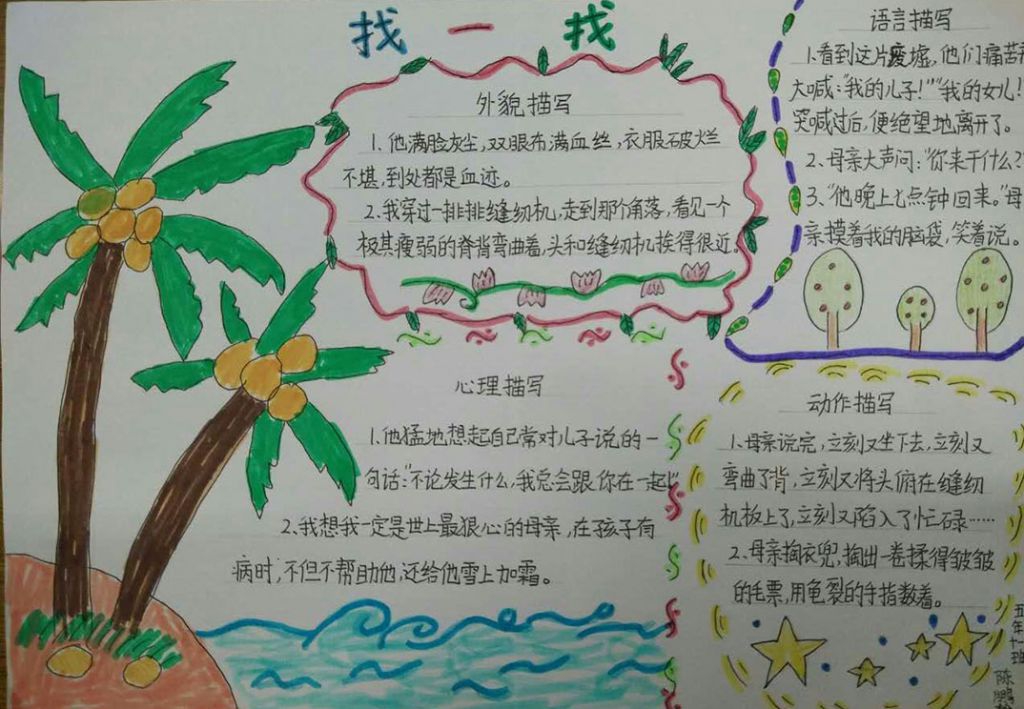 找一找
外貌描写
1.他满脸灰尘,双眼布满血丝,衣服破烂
不堪,到处都是血迹。
2.我穿过一排排缝纫机,走到那个角落,看见一个
极其瘦弱的脊背弯曲着,头和缝纫机挨得很近。
语言描写
1.看到这片废墟,他们痛苦
大喊:“我的儿子!”“我的女儿!
哭喊过后,便绝望地离开了。
2.母亲大声问:“你来干什么?
3.“他晚上七点钟回来。”母
亲摸着我的脑袋,笑着说。
心理描写
1.他猛地想起自己常对儿子说的一
句话:“不论发生什么,我总会跟你在一起!”
2.我想我一定是世上最狠心的母亲,在孩子有
病时,不但不帮助他,还给他雪上加霜。
动作描写
1.母亲说完,立刻又坐下去,立刻又
弯曲了背,立刻又将头俯在缝纫
机板上了,立刻又陷入了忙碌……
2.母亲掏衣兜,掏出一卷揉得皱皱
的毛票,用龟裂的手指数着。
五年十班
陈鹏